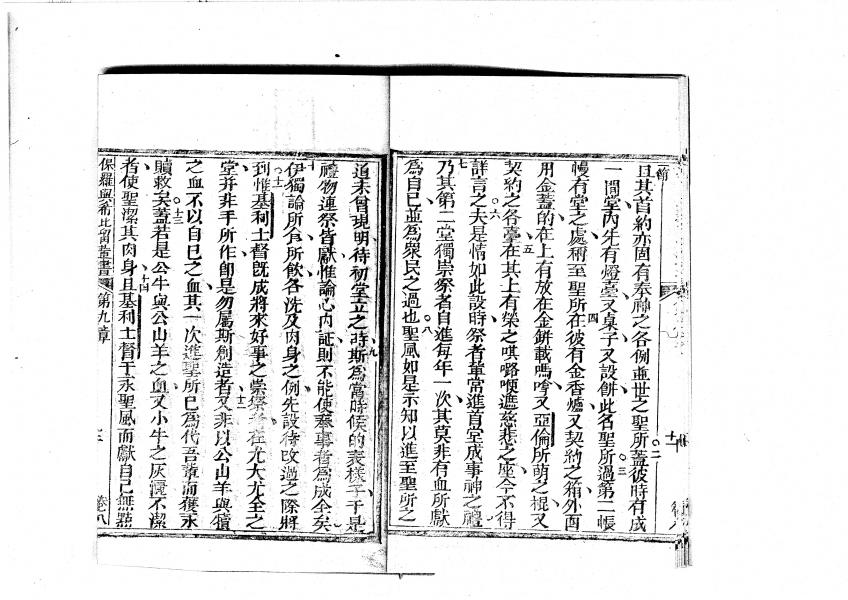 首
且其首約亦固有奉神之各例並世之聖所蓋彼時有成
一間堂內先有燈臺又桌子又設餅此名聖所過第二帳
幔有堂之處稱至聖所在彼有金香爐又契約之箱外面
用金蓋的在上有放在金餅載嗎嗱又亞倫所萌之棍又
契約之各臺在其上有榮之㖵嚕㗝遮慈悲之座今不得
詳言之夫是情如此設時祭者輩常進首堂成事神之禮
乃其第二堂獨崇祭者自進每年一次其莫非有血所獻
為自己並為眾民之過也聖風如是示知以進至聖所之
道未曾現明待初堂立之時斯為當時候的表樣子于是
禮物連祭皆獻惟論心內証則不能使奉事者為成全矣
伊獨論所食所飲各洗及肉身之例先設待改過之際將
到惟基利士督既成將來好事之崇祭者在尤大尤全之
堂并非手所作即是勿屬斯創造者又非以公山羊與犢
之血不以自己之血其一次進聖所已為代吾輩而獲永
贖救矣蓋若是公牛與公山羊之血又小牛之灰洒不潔
者使聖潔其肉身且基利士督于永聖風而獻自己無玷
保羅與希比留輩書 第九章 卷八